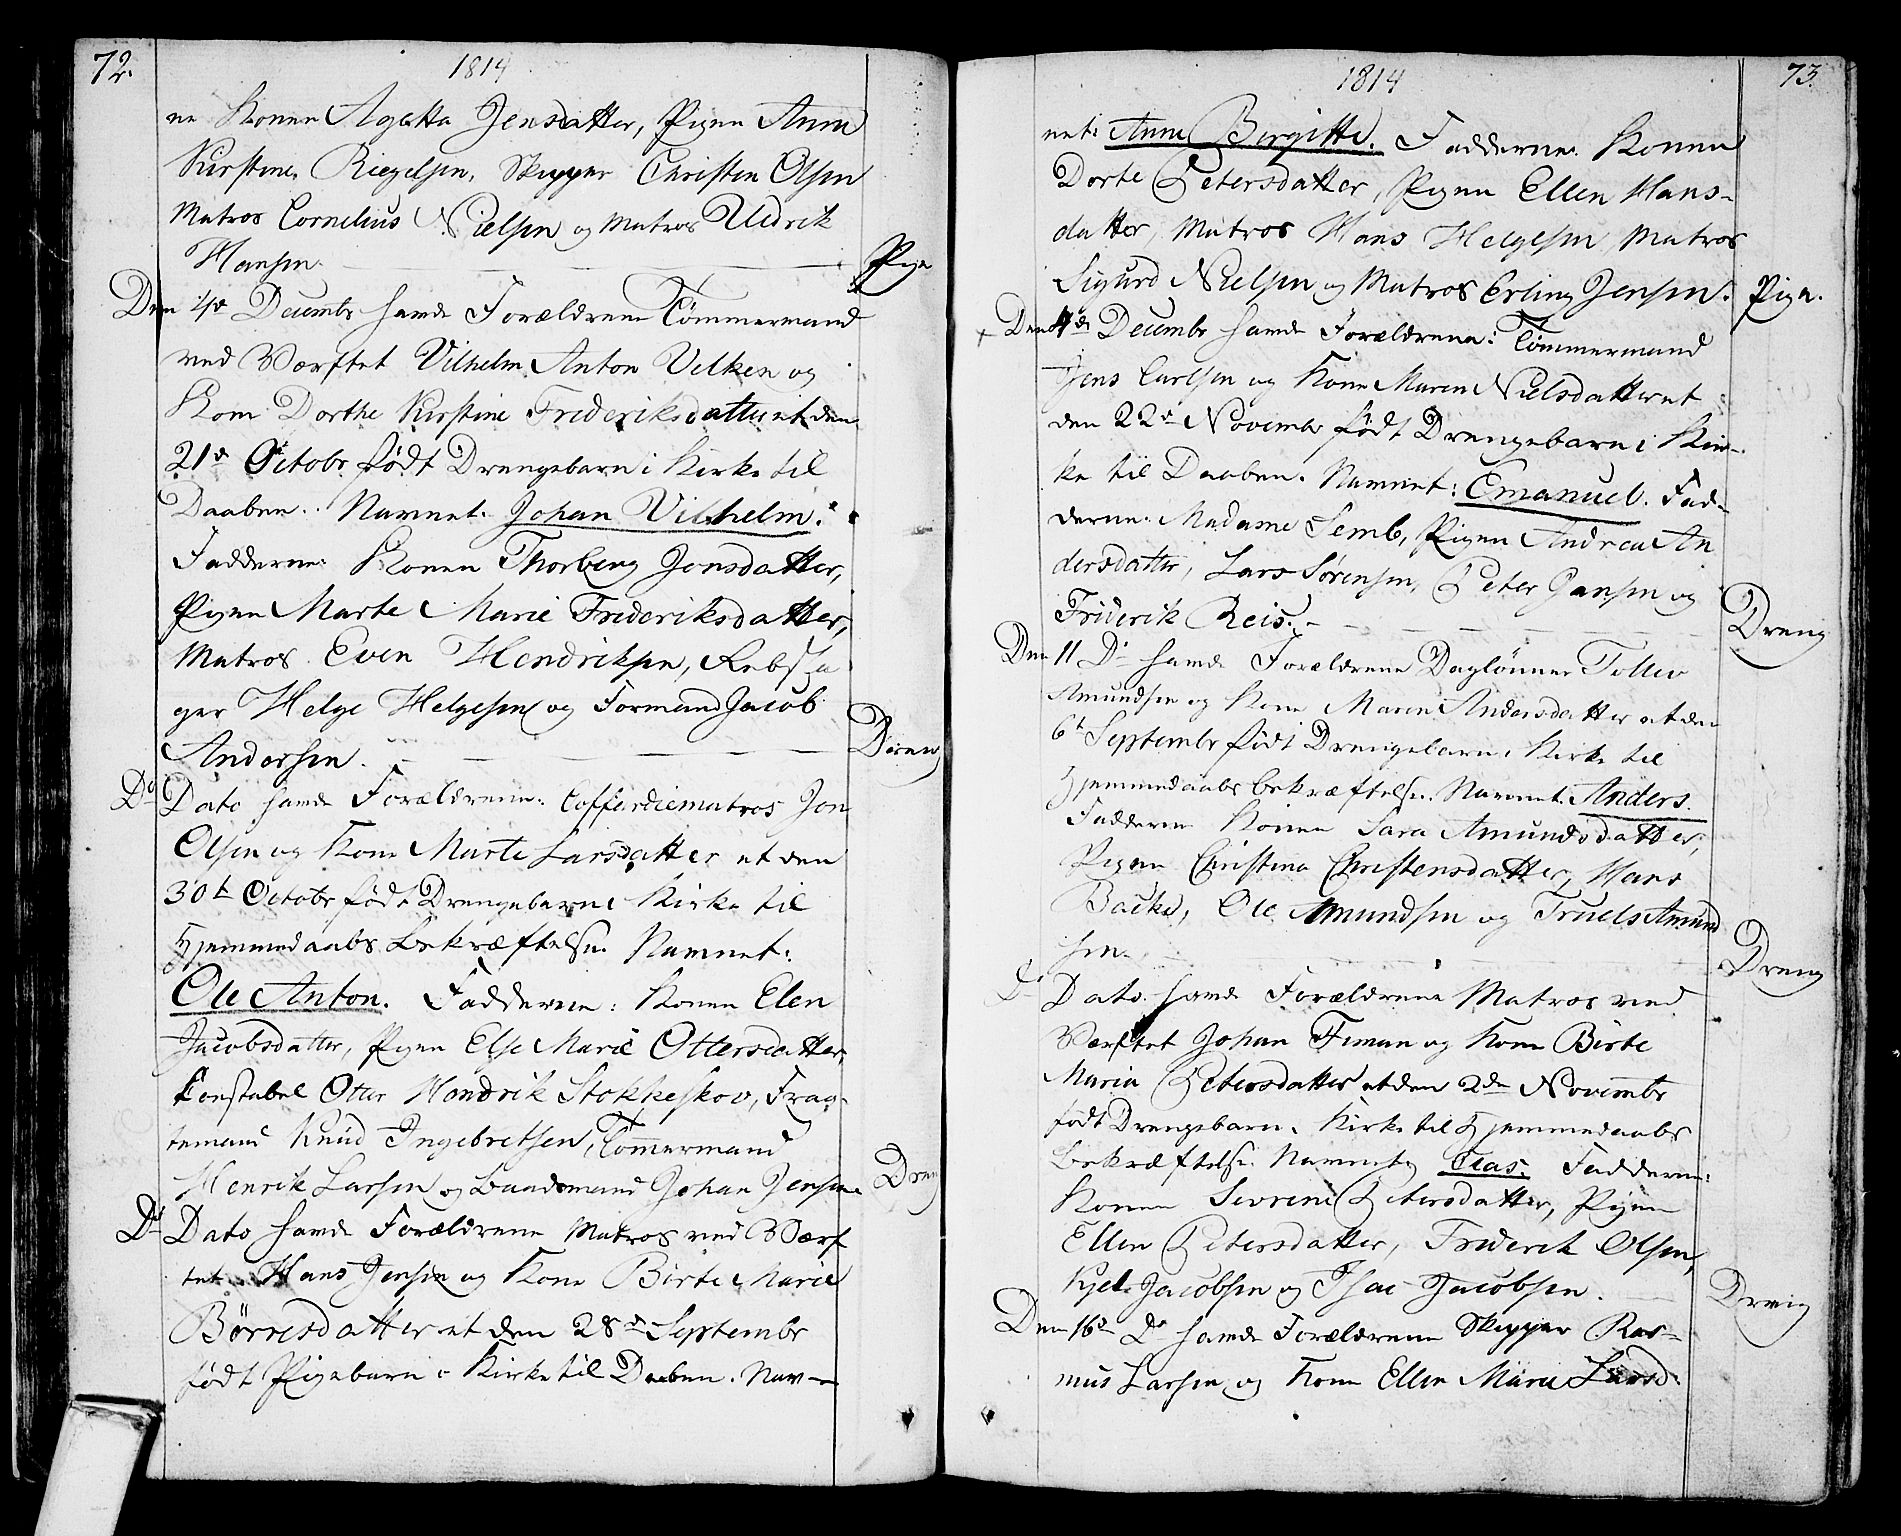 72.
1814
ne Konen Agatta Jensdatter, Pigen Anne
Kirstine Riegelsen, Skipper Christen Olsen
Matros Cornelius Nielsen og Matros Uldrik
Hansen.
Pige
Den 4de Decembr havde Forældrene Tömmermand
ved Værftet Vilhelm Anton Velken og
Kone Dorthe Kirstine Frideriksdatter et den
21de Octobr födt Drengebarn i Kirke til
Daaben. Navnet. Johan Vilhelm.
Fadderne: Konen Thorberg Jonsdatter,
Pigen Marte Marie Frideriksdatter,
Matros Even Hendriksen, Rebsla
ger Helge Helgesen og Formand Jacob
Andersen.
Dreng
Do Dato havde Forældrene: Coffardiematros Jon
Olsen og Kone Marte Larsdatter et den
30te Octobr födt Drengebarn i Kirke til
Hjemmedaabs Bekræftelse. Navnet:
Ole Anton. Fadderne: Konen Elen
Jacobsdatter, Pigen Else Marie Ottersdatter,
Constabel Otter Hendrik Stokkeskov, Frag-
temand Knud Ingebretsen, Tömmermand
Henrik Larsen og Baadsmand Johan Jensen
Dreng
Do Dato havde Forældrene Matros ved Værf
tet Hans Jensen og Kone Birte Marie
Börresdatter et den 28de Septembr
födt Pigebarn i Kirke til Daaben. Nav-
73.
1814
net: Anne Birgitte. Fadderne. Konen
Dorte Petersdatter, Pigen Ellen Hans-
datter, Matros Hans Helgesen, Matros
Sigurd Nielsen og Matros Erling Jensen.
Pige.
+ Den 4de Decembr havde Forældrene: Tömmermand
Jens Carlsen og Kone Maren Nielsdatter et
den 22de Novembr födt Drengebarn i Kir-
ke til Daaben. Navnet: Emanuel. Fad-
derne: Madame Semb, Pigen Andrea An
dersdatter, Lars Sörensen, Peter Jansen og
Friderik Reis.
Dreng
Den 11 Do havde Forældrene Daglönner Tollev
Amundsen og Kone Maren Andersdatter et den
6te Septembr födt Drengebarn i Kirke til
Hjemmedaabs bekræftelse. Navnet. Anders.
Fadderne Konen Sara Amundsdatter,
Pigen Christina Christensdatter, Hans
Backe, Ole Amundsen og Truels Amund
sen.
Dreng
Do Dato havde Forældrene Matros ved
Værftet Johan Fiman og Kone Birte
Maria Petersdatter et den 2den Novembr
födt Drengebarn i Kirke til Hjemmedaabs
Bekræftelse. Navnet Elas. Fadderne:
Konen Sevrene Petersdatter, Pigen
Ellen Petersdatter, Friderik Olsen,
Kjel Jacobsen og Isac Jacobsen.
Dreng
Den 16de Do havde Forældrene Skipper Ras-
mus Larsen og Kone Ellen Marie Larsd.